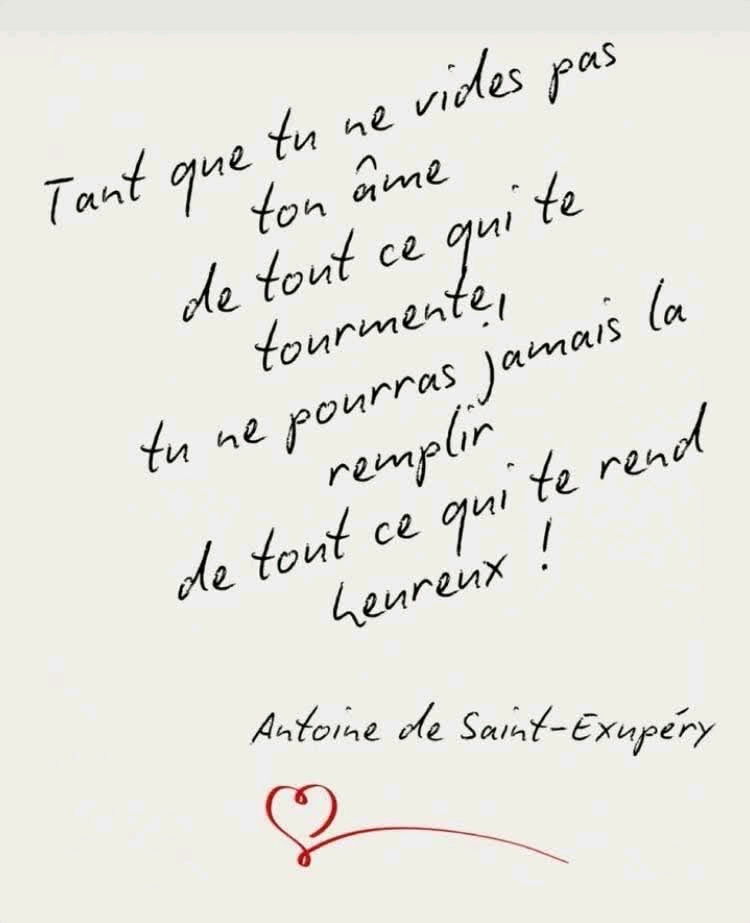 Tant que tu ne vides pas
ton âme
de tout ce qui te
tourmente,
tu ne pourras jamais la
remplir
de tout ce qui te rend
heureux !
Antoine de Saint-Exupéry